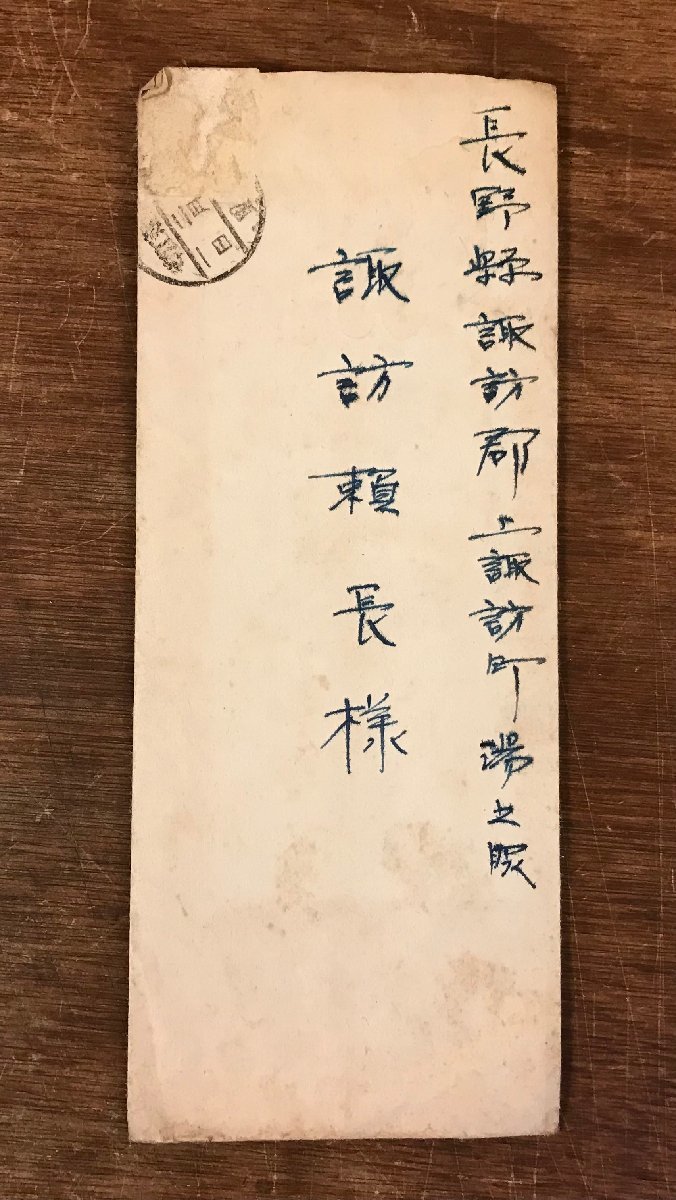 長野縣諏訪郡上諏訪町湯之脇
諏訪頼長様